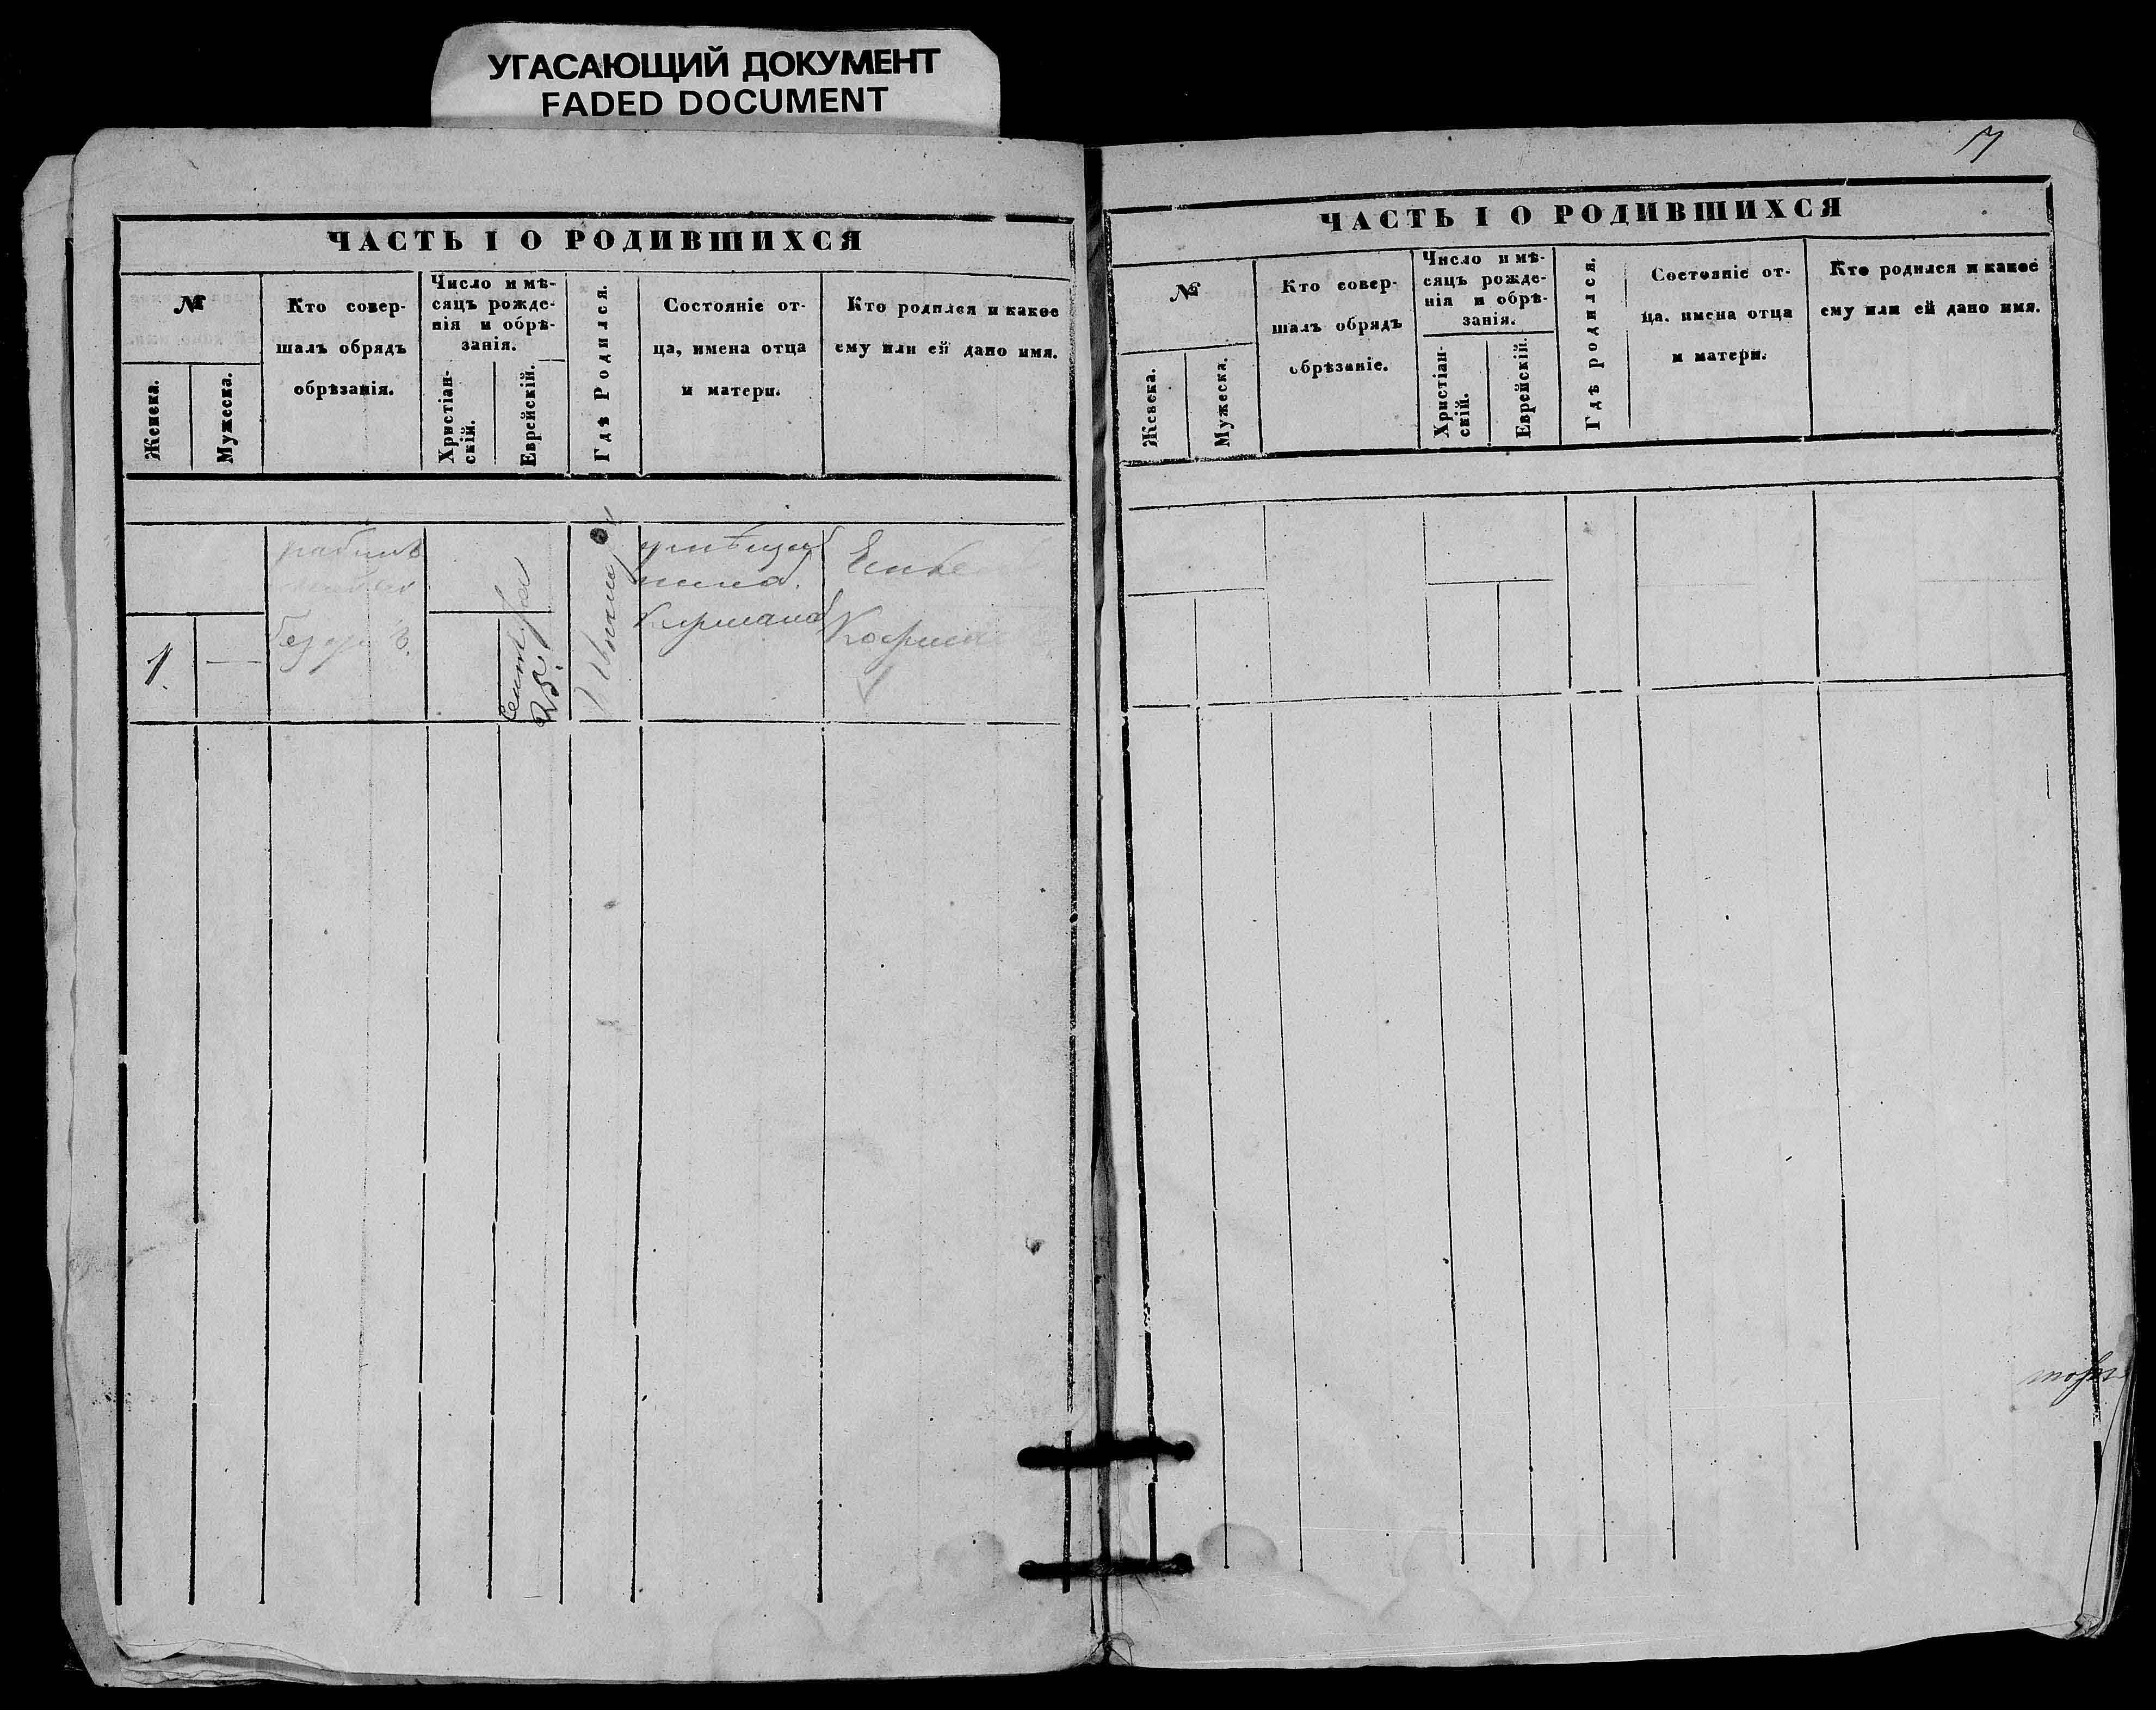 УГАСАЮЩИЙ ДОКУМЕНТ
FADED DOCUMENT
ЧАСТЬ I О РОДИВШИХСЯ
№
Женска.
Мужеска.
Кто совер-
шалъ обрядъ
обрѣзанія.
Число и мѣ-
сяцъ рожде-
нія и обрѣ-
занія.
Христіан-
скій.
Еврейскій.
Гдѣ Родился.
Состояніе от-
ца, имена отца
и матери.
Кто родился и какое
ему или ей дано имя.
1.
—
Сентября
25.
7
ЧАСТЬ I О РОДИВШИХСЯ
№
Женска.
Мужеска.
Кто совер-
шалъ обрядъ
обрѣзаніе.
Число и мѣ-
сяцъ рожде-
нія и обрѣ-
занія.
Христіан-
скій.
Еврейскій.
Гдѣ родился.
Состояніе от-
ца. имена отца
и матери.
Кто родился и какое
ему или ей дано имя.